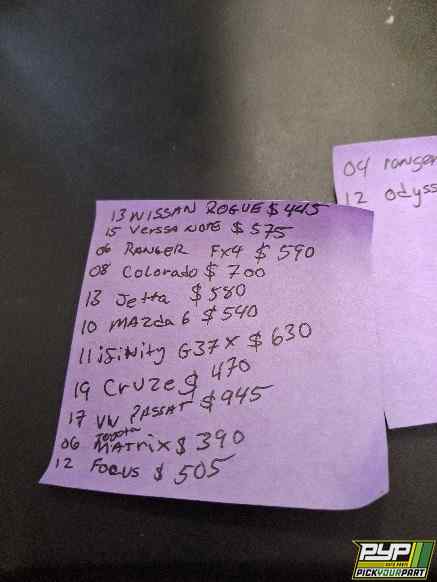 13 NISSAN ROGUE $ 445
15 Verssa NOTE $ 575
06 RANGER FX4 $ 590
08 Colorado $ 700
13 Jetta $ 580
10 MAZda 6 $ 540
11 iSiNity G37X $ 630
19 Cruze $ 470
17 VW PASSAT $ 945
06 Toyota MATrix $ 390
12 Focus $ 505
04 ranger
12 Odyss
PYP
AUTO PARTS
PICKYOURPART